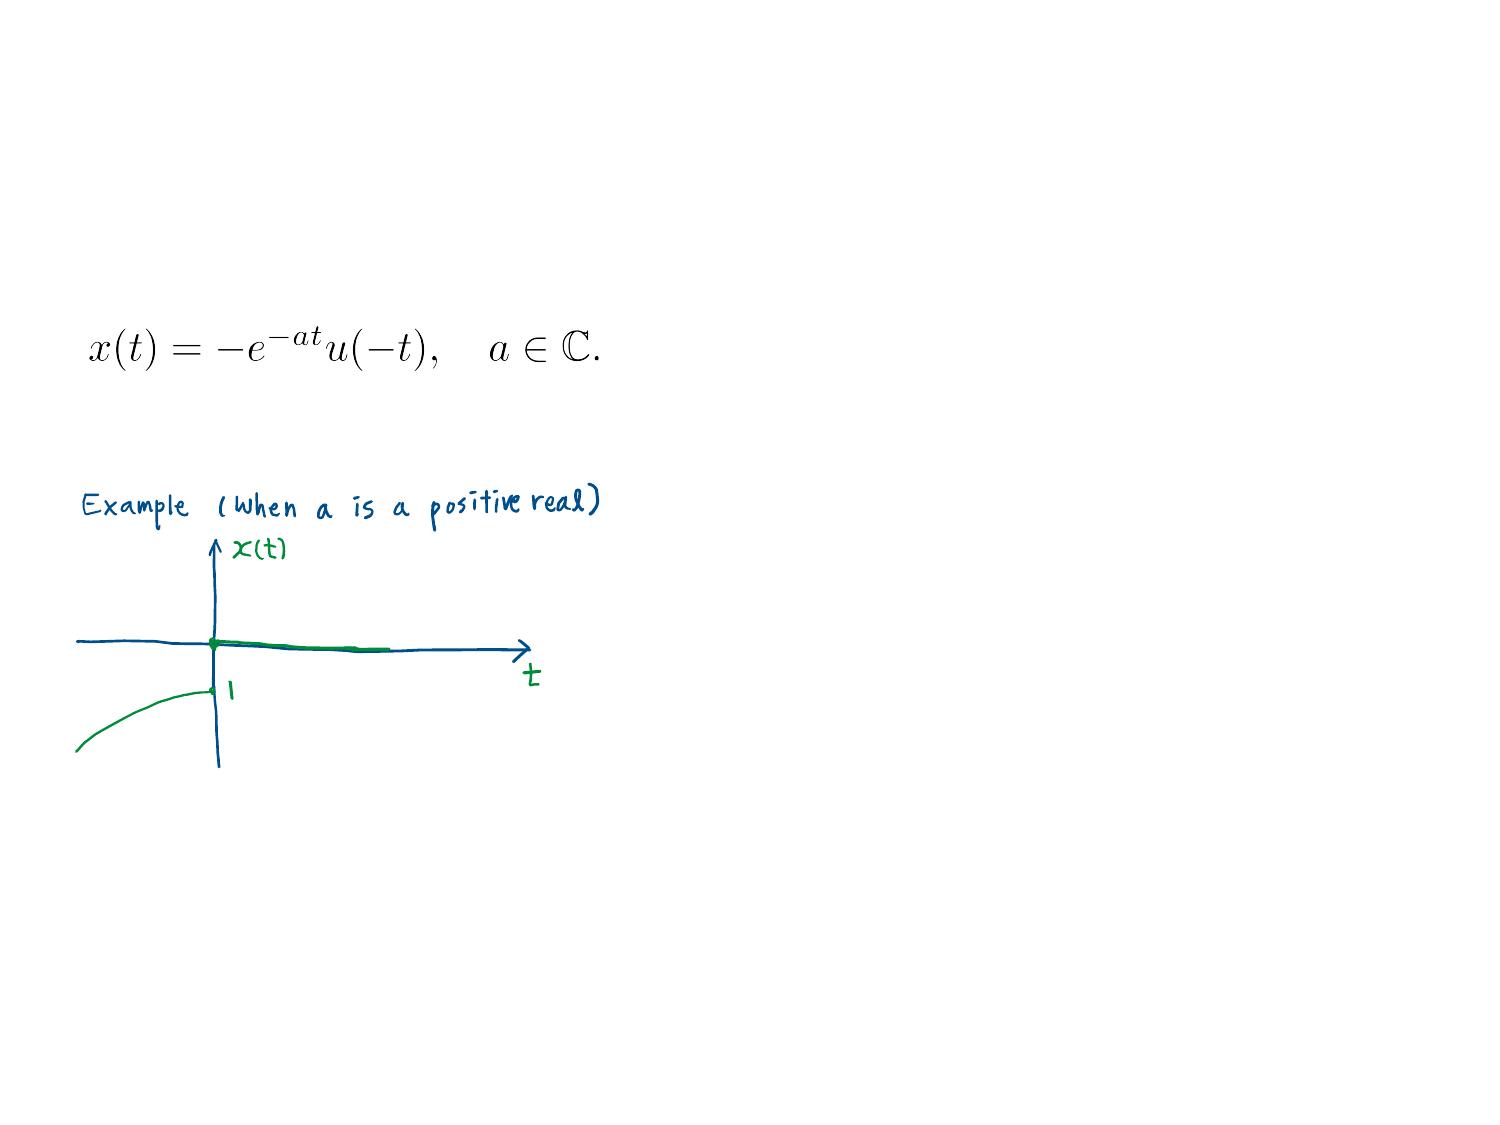 x(t) = −e^{−at}u(−t), a ∈ ℂ.
Example (when a is a positive real)
x(t)
t
1